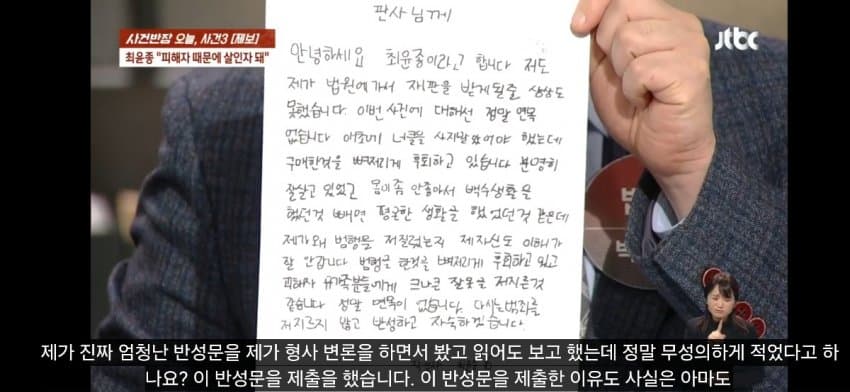 판사님께
사건반장 오늘, 사건3 [제보]
최윤종 "피해자 때문에 살인자 돼"
jtbc
안녕하세요 최윤종이라고 합니다 저도
제가 법원에가서 재판을 받게될줄 상상도
못했습니다. 이번 사건에 대해선 정말 면목
없습니다 애초에 너클을 사지말았어야 했는데
구매한것을 뼈저리게 후회하고 있습니다 분명히
잘살고 있었고 몸이좀 안좋아서 백수생활을
했던것 빼면 평균한 생활을 했었던것 같은데
제가왜 범행을 저질렀는지 제자신도 이해가
잘 안갑니다 범행을 한것을 뼈저리게 후회하고 있고
피해자 유가족분들에게 크나큰 잘못을 저지른것
같습니다 정말 면목이 없습니다. 다시는범죄를
저지르지 않고 반성하고 자숙하겠습니다.
제가 진짜 엄청난 반성문을 제가 형사 변론을 하면서 봤고 읽어도 보고 했는데 정말 무성의하게 적었다고 하
나요? 이 반성문을 제출을 했습니다. 이 반성문을 제출한 이유도 사실은 아마도